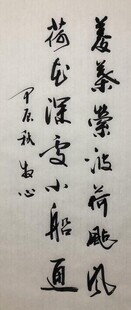 菱叶萦波荷飐风
荷花深处小船通
甲辰秋 敬心